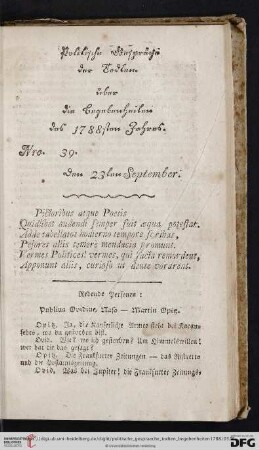 Politische Gespräche
der Todten
über
die Begebenheiten
des 1788sten Jahres.
Nro. 39.
Den 23ten September.
Pictoribus atque Poetis
Quidlibet audendi semper fuit æqua potestas.
Adde tabellatos moderno tempore scribas,
Pejores aliis temere mendacia promunt.
Vermes Politices! vermes, qui facta remordent,
Apponunt aliis, curiosa ut dente vorarent.
Redende Personen:
Publius Ovidius, Naso — Martin Opitz.
Opitz. Ja, die Kaiserliche Armee steht bei Karansebes, wo du gestorben bist.
Ovid. Was wo ich gestorben? Um Himmelswillen!
wer hat dir das gesagt?
Opitz. Die Frankfurter Zeitungen — das Ristretto
und die
Ovid. Was bei Jupiter! die Frankfurter Zeitungs-
DFG